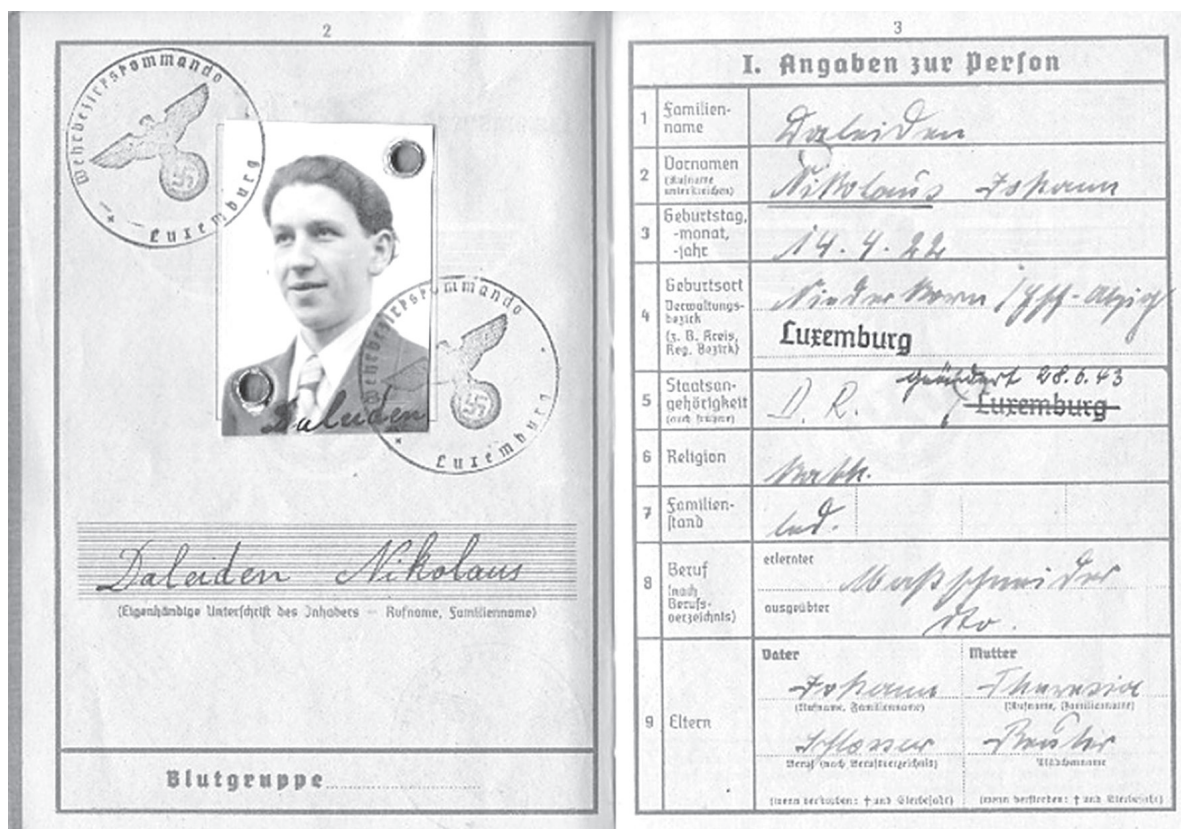 2
Wehrbezirkskommando
Luxemburg
Wehrbezirkskommando
Luxemburg
Daleiden
Daleiden Nikolaus
(Eigenhändige Unterschrift des Inhabers — Rufname, Familienname)
Blutgruppe
3
I. Angaben zur Person
1 Familien-
name
Daleiden
2 Vornamen
(Rufname
unterstreichen)
Nikolaus Johann
3 Geburtstag,
-monat,
-jahr
14. 4. 22
4 Geburtsort
Verwaltungs-
bezirk
(z. B. Kreis,
Reg. Bezirk)
Niederkorn
Luxemburg
5 Staatsan-
gehörigkeit
(auch frühere)
geändert 28.6.43
D. R. Luxemburg
6 Religion
kath.
7 Familien-
stand
led.
8 Beruf
(nach
Berufs-
verzeichnis)
erlernter
Maßschneider
ausgeübter
dto.
9 Eltern
Vater Mutter
Johann Theresia
(Rufname, Familienname) (Rufname, Familienname)
Schlosser Reuter
Beruf (nach Berufsverzeichnis) Mädchenname
(wenn verstorben: † und Sterbejahr) (wenn verstorben: † und Sterbejahr)